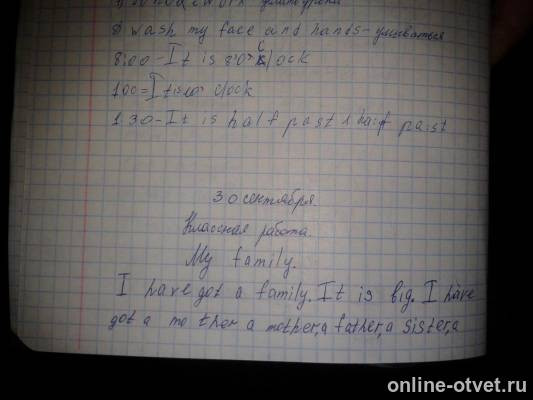 wash my face and hands - умываться
8:00 - It is 8 o'clock
1:00 = It is o'clock
1 30 - It is half past 1 half past
30 сентября.
Классная работа.
My family.
I have got a family. It is big. I have
got a mo ther a mother, a father, a sister, a
online-otvet.ru